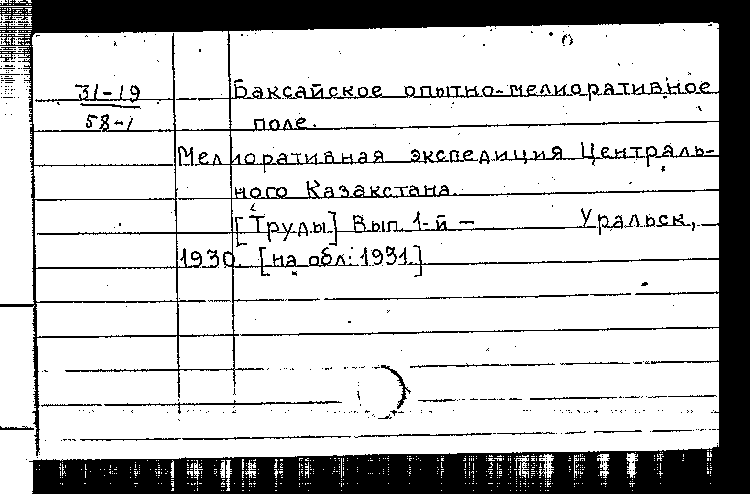 31-19
58-1
Баксайское опытно-мелиоративное
поле.
Мелиоративная экспедиция Централь-
ного Казакстана.
[Труды] Вып. 1-й — Уральск,
1930. [на обл: 1931.]